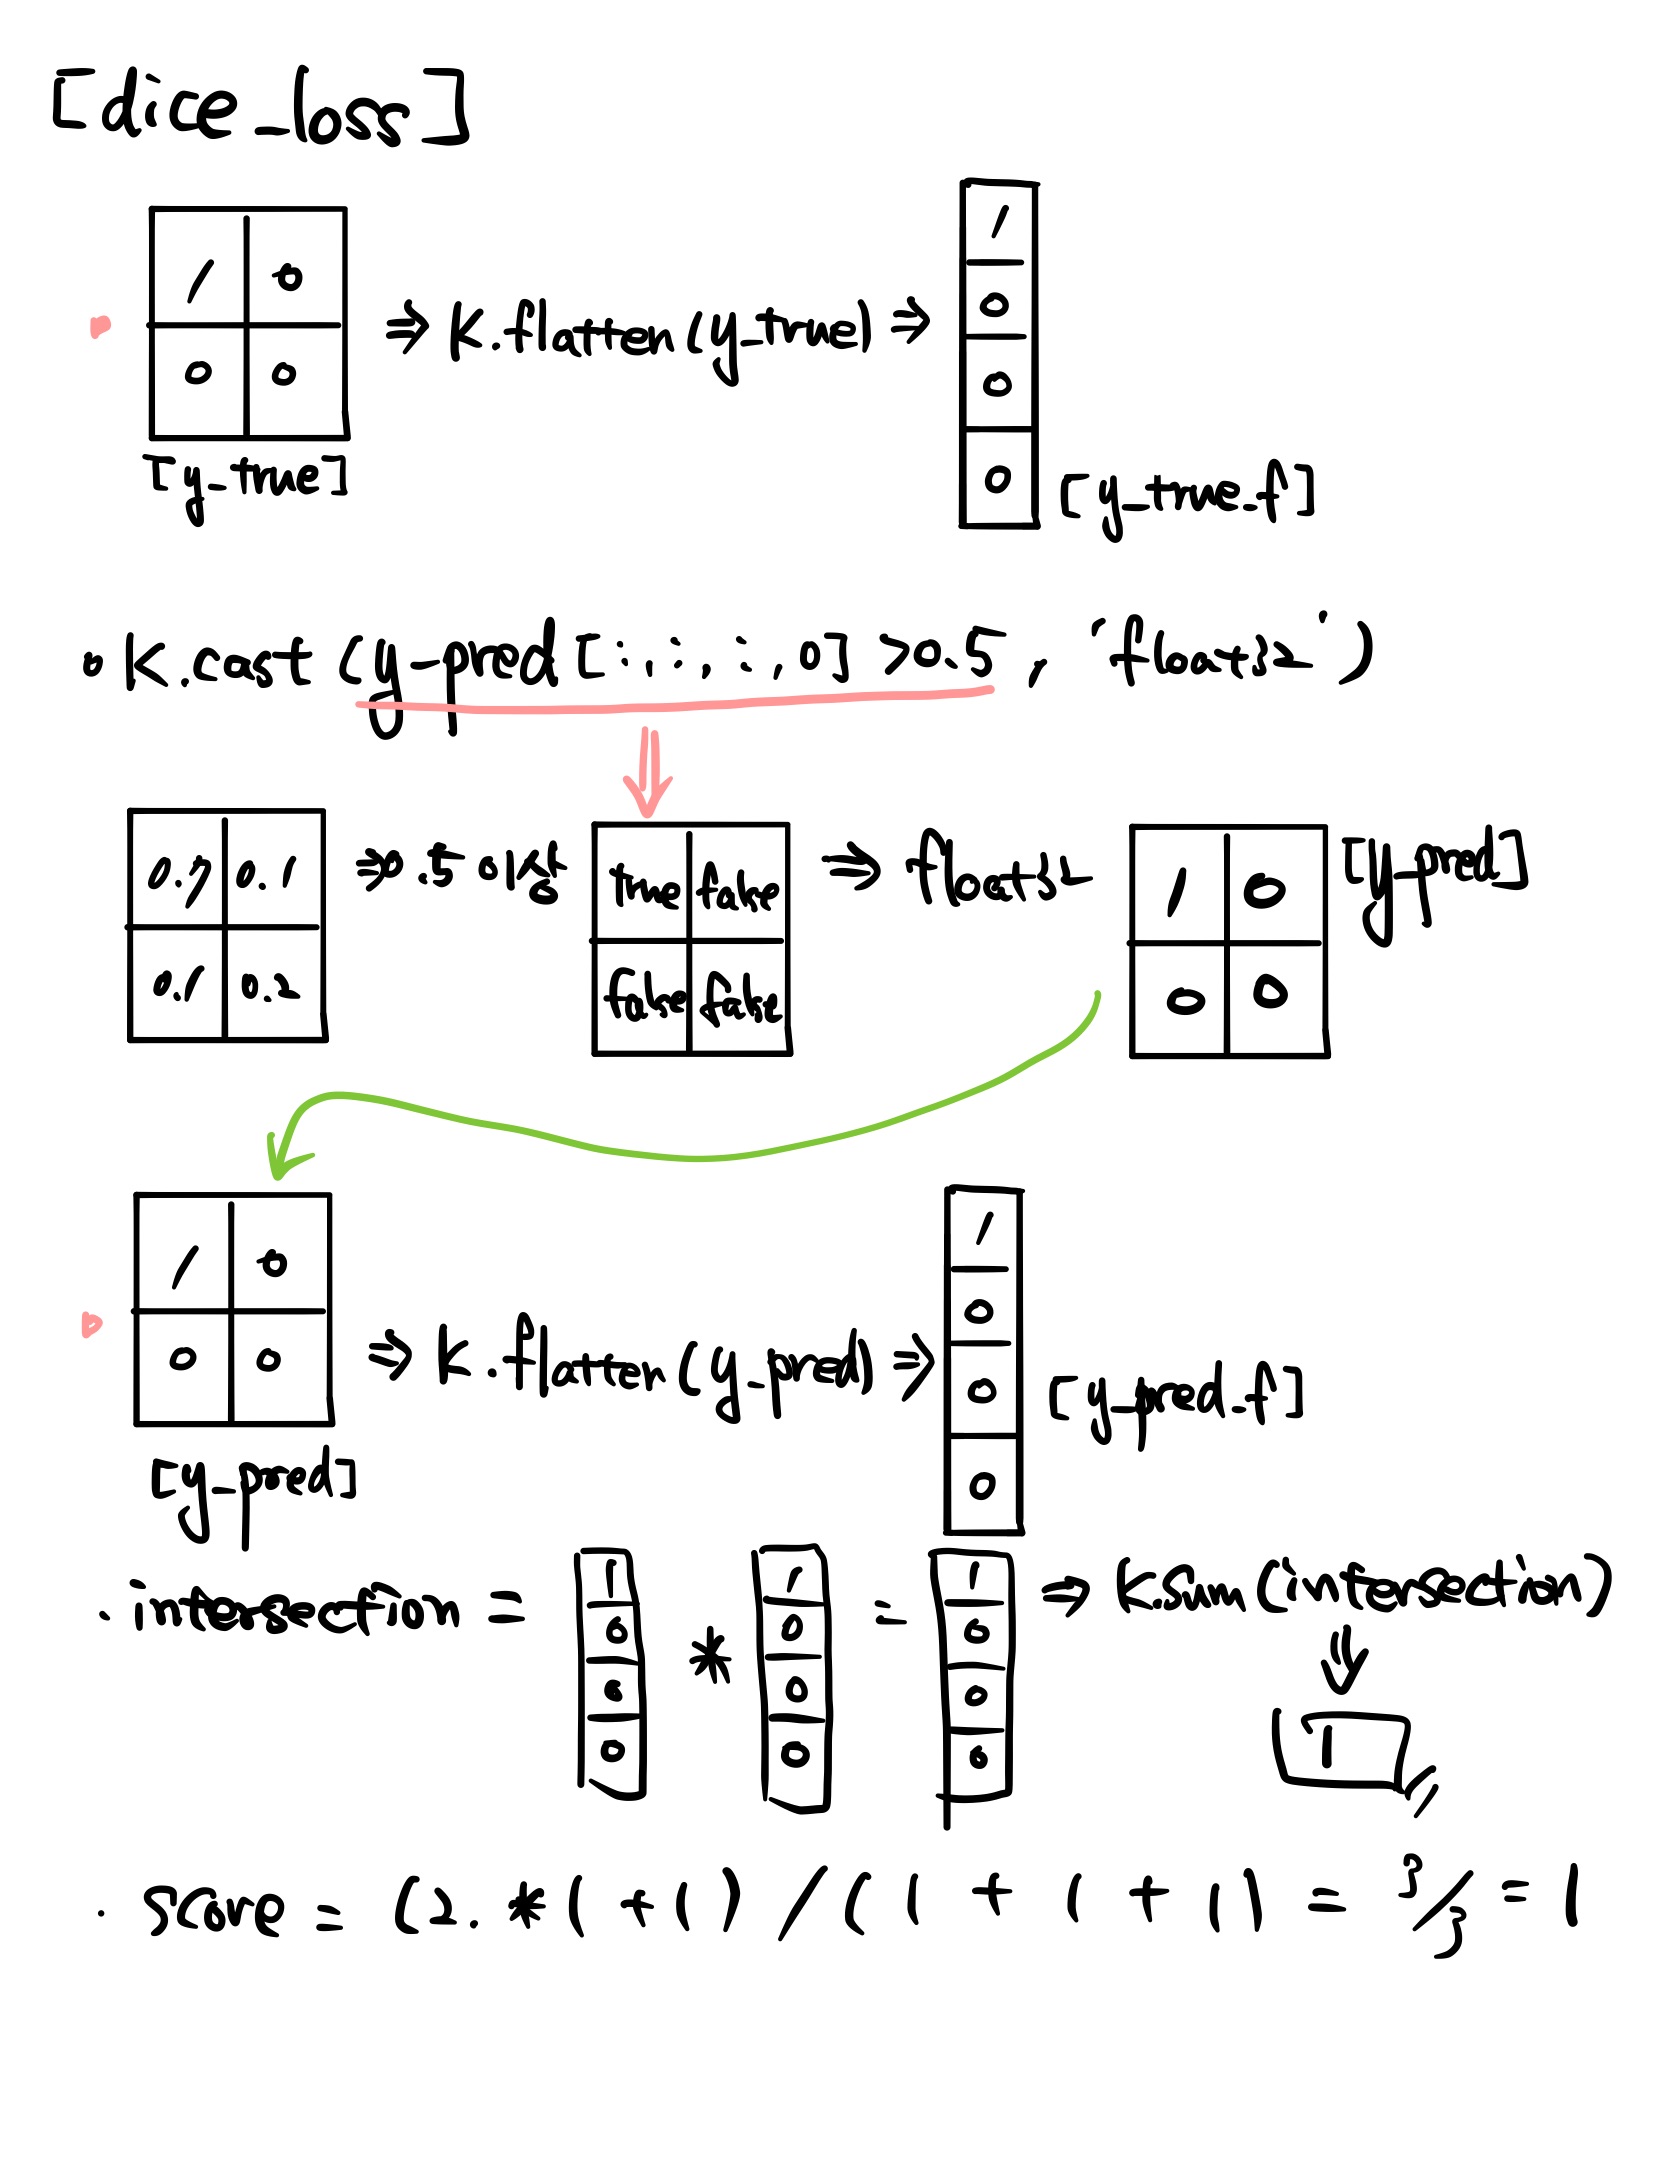 [dice_loss]
1 0
0 0
[y_true]
⇒ K.flatten(y_true) ⇒
1
0
0
0
[y_true_f]
K.cast (y_pred [:,:,:,0] >0.5, 'float32')
0.7 0.1
0.1 0.2
⇒ 0.5 이상
true false
false false
⇒ float32
1 0
0 0
[y_pred]
1 0
0 0
[y_pred]
⇒ K.flatten(y_pred) ⇒
1
0
0
0
[y_pred_f]
· intersection =
1
0
0
0
*
1
0
0
0
=
1
0
0
0
⇒ K.sum(intersection)
⇓
1
· score = (2. * 1 + 1) / (1 + 1 + 1) = 3/3 = 1